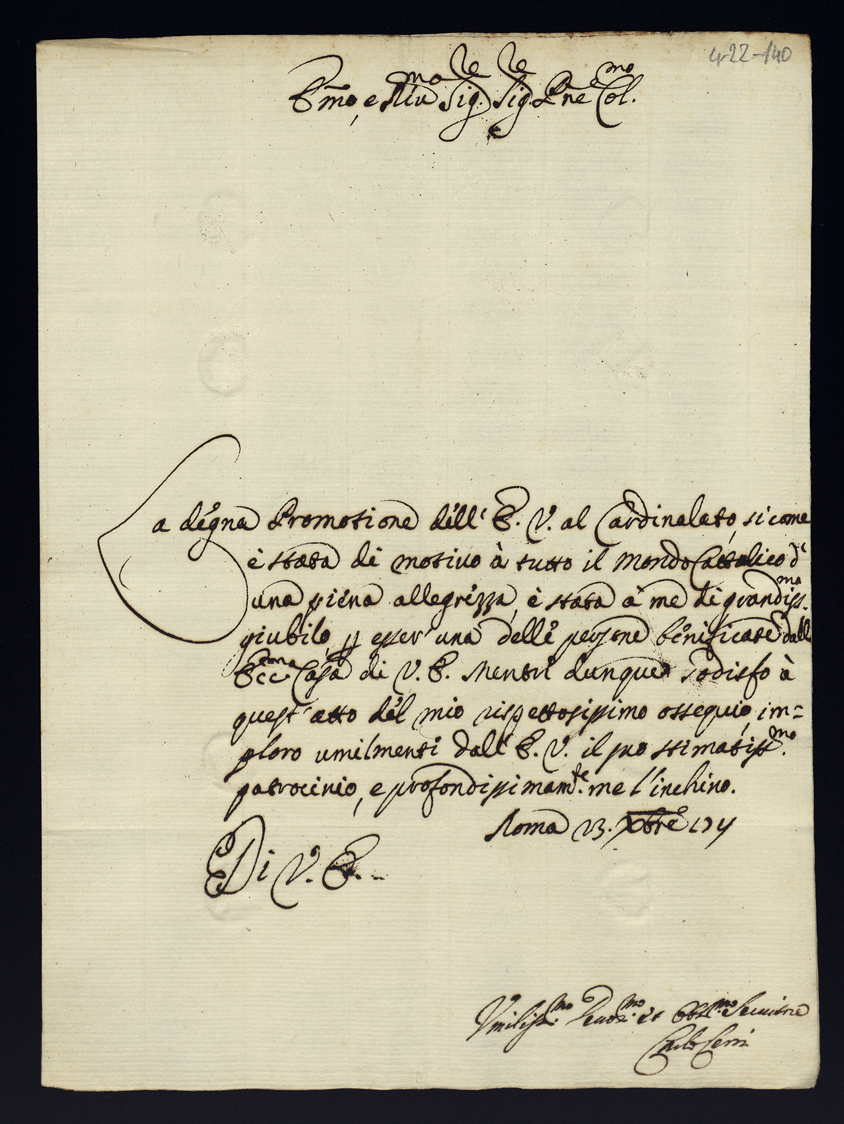 4-22-140
Em̄o, e R̄m̄o Sig.re Sig.re Pn̄e Col.mo
La degna Promotione dell' E. V. al Cardinalato, si come
è stata di motivo à tutto il Mondo Cattolico d'
una piena allegrezza, è stata à me di grandiss.mo
giubilo, p esser' una delle persone beneficate dall
Ecc.ma Casa di V. E. Mentre dunque sodisfo à
quest' atto del mio rispettosissimo ossequio, im=
ploro umilmente dall' E. V. il suo stimatiss.mo
patrocinio, e profondissimam.te me l'inchino.
Roma 23. Xbre
Di V. E.
Umiliss.mo Devot.mo et Obl.mo Servitore
Carlo Cerri